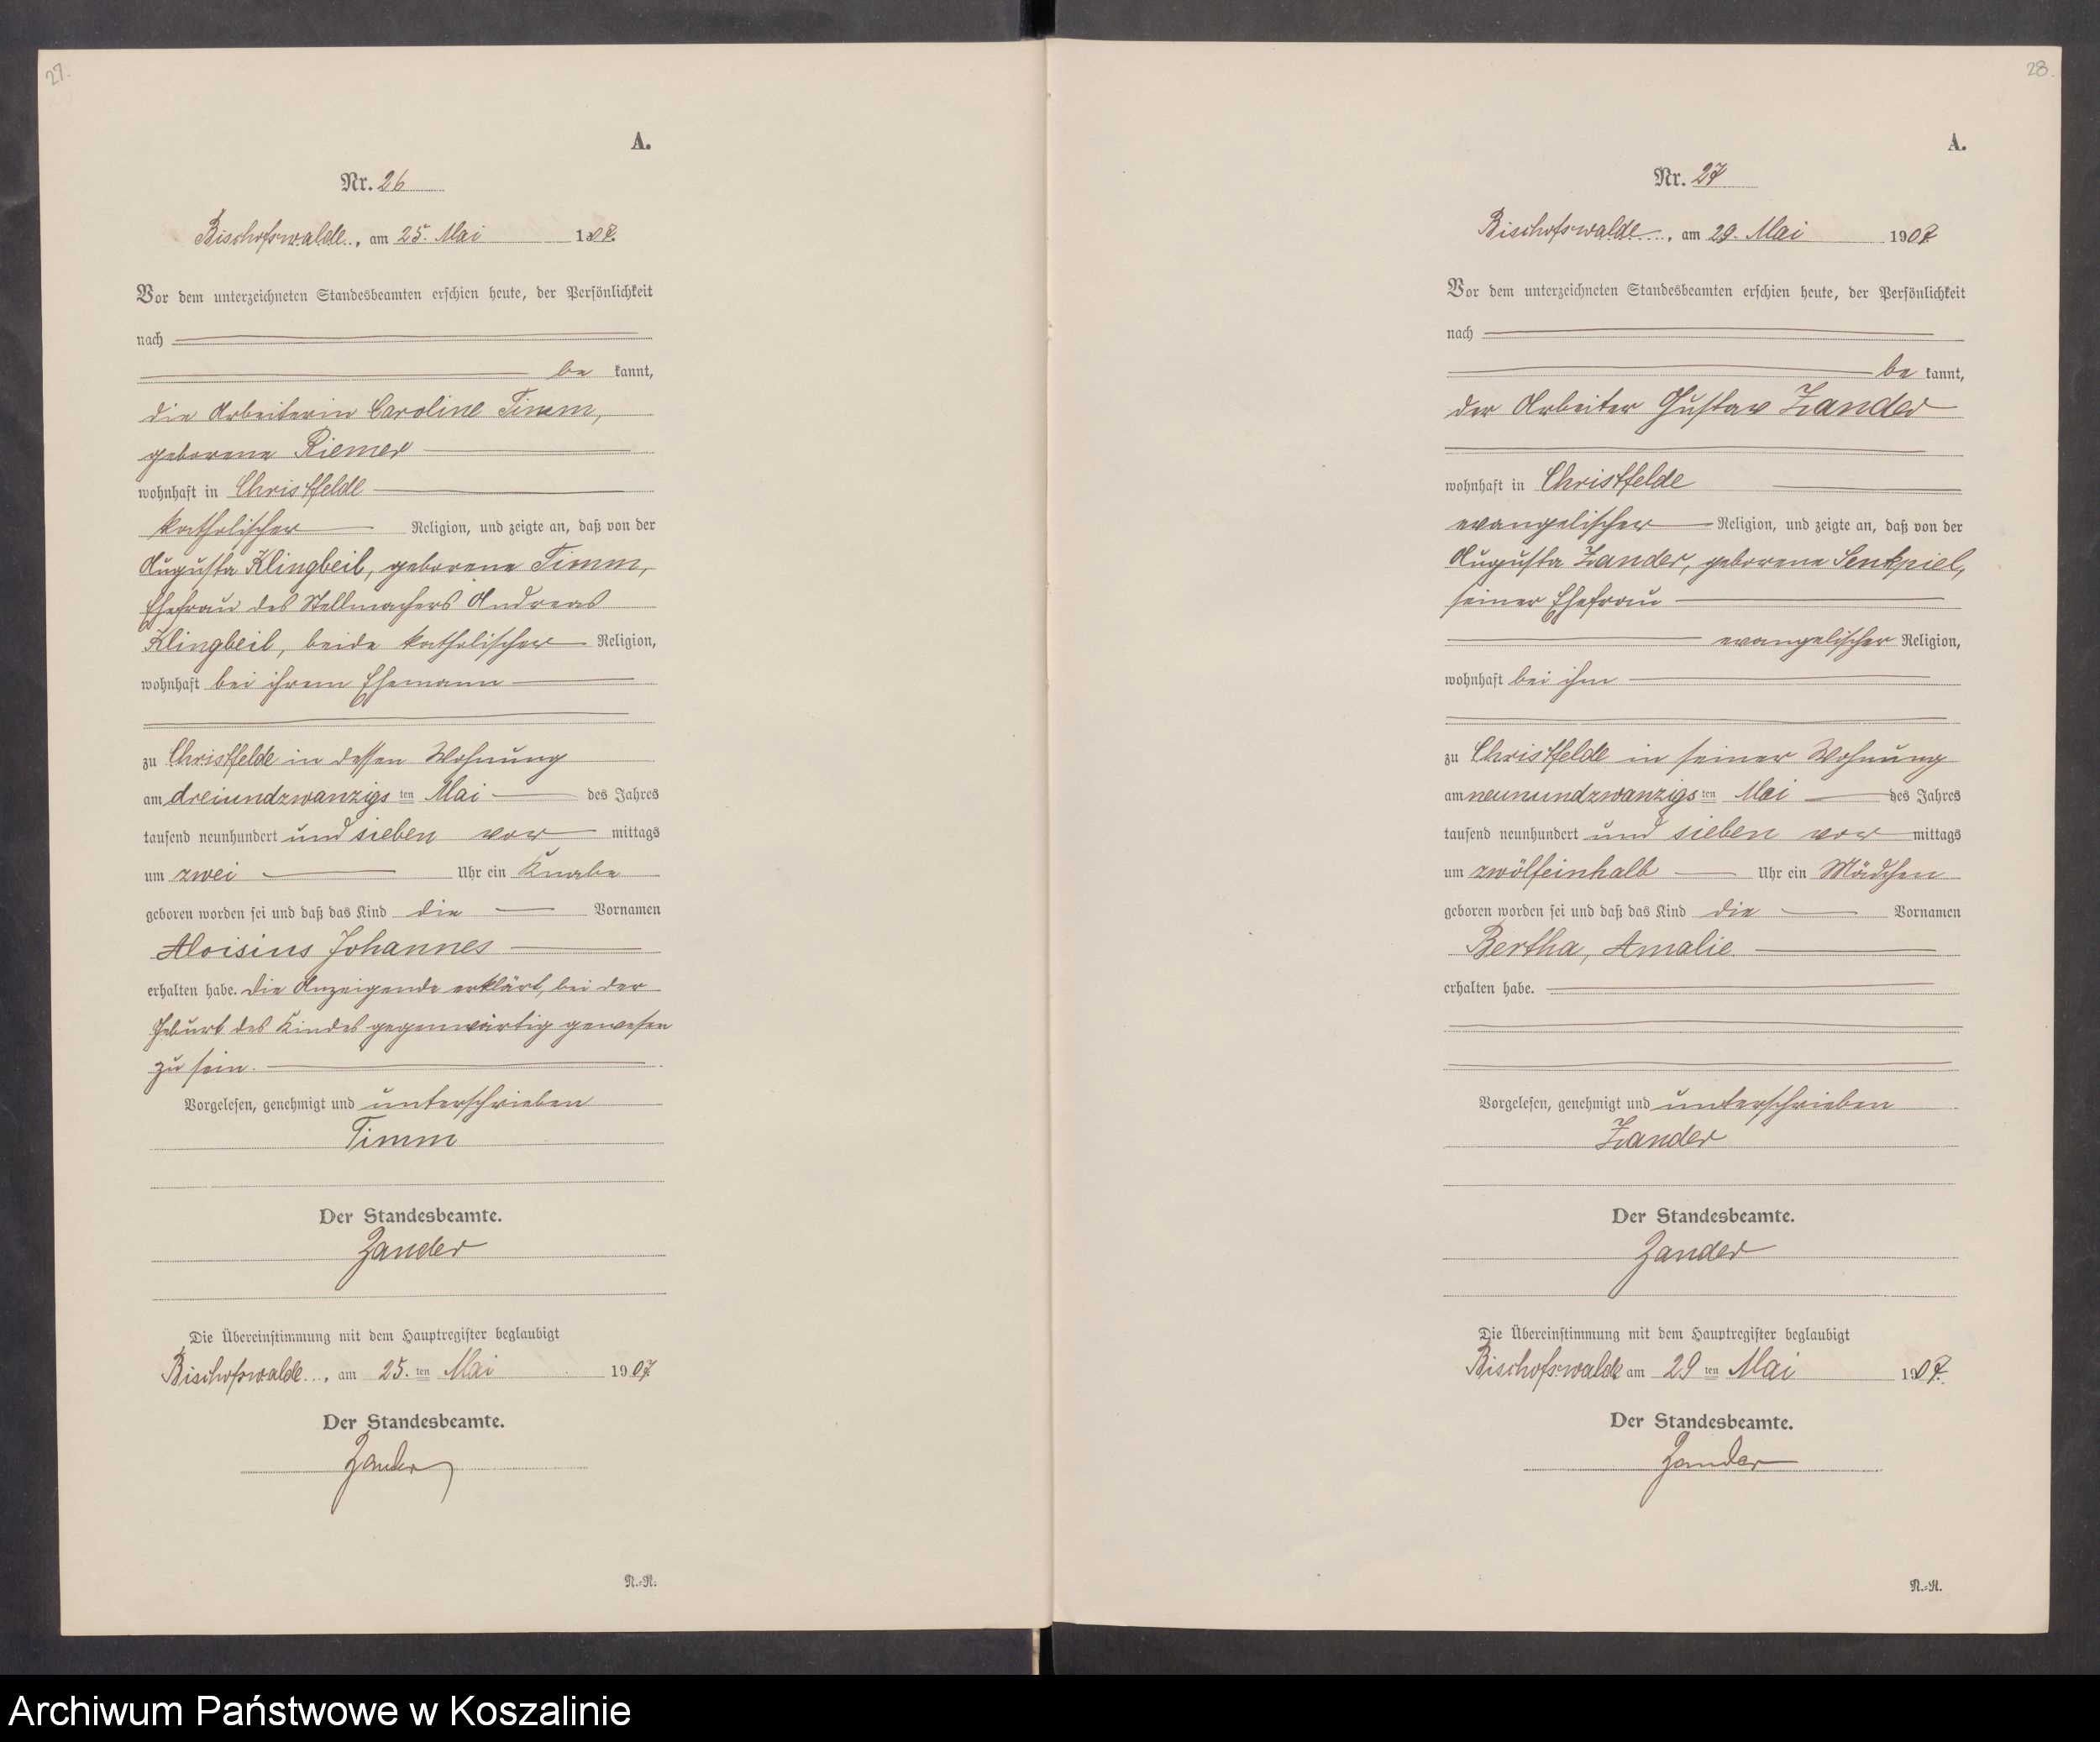 27.
A.
Nr. 26
Bischofswalde, am 25. Mai 1907.
Vor dem unterzeichneten Standesbeamten erschien heute, der Persönlichkeit
nach
be kannt,
die Arbeiterin Caroline Timm,
geborene Riemer
wohnhaft in Christfelde
katholischer Religion, und zeigte an, daß von der
Augusta Klingbeil, geborene Timm,
Ehefrau des Stellmachers Andreas
Klingbeil, beide katholischer Religion,
wohnhaft bei ihrem Ehemann
zu Christfelde in dessen Wohnung
am dreiundzwanzigs ten Mai des Jahres
tausend neunhundert und sieben vor mittags
um zwei Uhr ein Knabe
geboren worden sei und daß das Kind die Vornamen
Aloisius Johannes
erhalten habe. Die Anzeigende erklärt, bei der
Geburt des Kindes gegenwärtig gewesen
zu sein.
Vorgelesen, genehmigt und unterschrieben
Timm
Der Standesbeamte.
Zander
Die Übereinstimmung mit dem Hauptregister beglaubigt
Bischofswalde, am 25. ten Mai 1907
Der Standesbeamte.
Zander
N.-R.
28.
A.
Nr. 27
Bischofswalde, am 29. Mai 1907.
Vor dem unterzeichneten Standesbeamten erschien heute, der Persönlichkeit
nach
be kannt,
der Arbeiter Gustav Zander
wohnhaft in Christfelde
evangelischer Religion, und zeigte an, daß von der
Augusta Zander, geborene Senkpiel,
seiner Ehefrau
evangelischer Religion,
wohnhaft bei ihm
zu Christfelde in seiner Wohnung
am neunundzwanzigs ten Mai des Jahres
tausend neunhundert und sieben vor mittags
um zwölfeinhalb Uhr ein Mädchen
geboren worden sei und daß das Kind die Vornamen
Bertha, Amalie.
erhalten habe.
Vorgelesen, genehmigt und unterschrieben
Zander
Der Standesbeamte.
Zander
Die Übereinstimmung mit dem Hauptregister beglaubigt
Bischofswalde am 29 ten Mai 1907.
Der Standesbeamte.
Zander
N.-R.
Archiwum Państwowe w Koszalinie